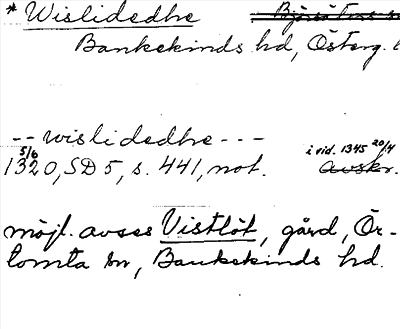 * Wislidedhe
Bankekinds hd, Österg. l
-- wislidedhe ---
5/6 i vid. 1345 20/4
1320, SD 5, s. 441, not. Avskr.
möjl. avses Vistlöt, gård, Ör-
tomta sn, Bankekinds hd.